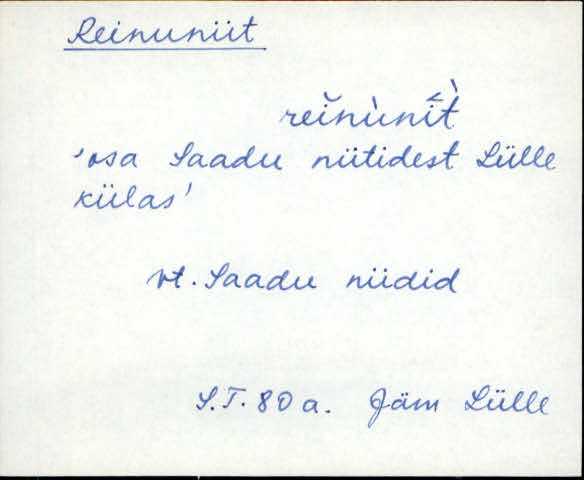 Reinuniit
reĭnùnî̀t
'osa Saadu niitidest Lülle
külas'
vt. Saadu niidid
S.T. 80 a. Jäm Lülle